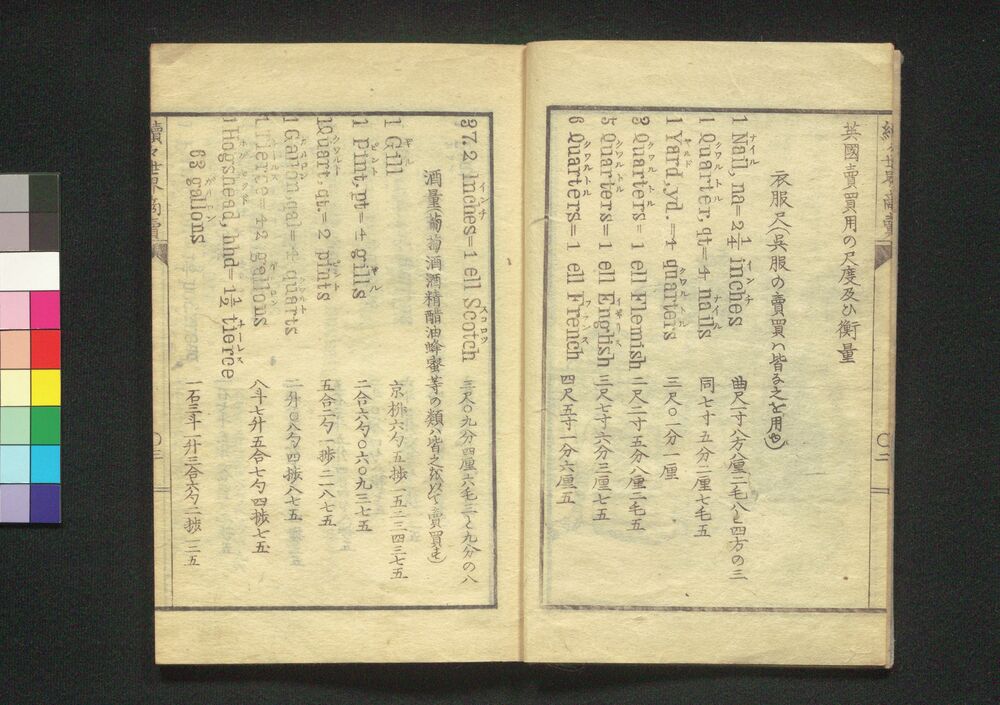 英國賣買用の尺度及ひ衡量
衣服尺(呉服の賣買ハ皆な之を用ゆ)
1 Nail, na=2 1/4 inches 曲尺一寸八方八厘二毛八と四方の三
1 Quarter, qt=4 nails 同七寸五分二厘七毛五
1 Yard, yd.=4 quarters 三尺〇一分一厘
3 Quarters=1 ell Flemish 二尺二寸五分八厘二毛五
5 Quarters=1 ell English 三尺七寸六分三厘七五
6 Quarters=1 ell French 四尺五寸一分六厘五
37.2 Inches=1 ell Scotch 三尺〇九分四厘六毛三と九分の八
酒量(葡萄酒酒精醋油蜂蜜等の類ハ皆之を以て賣買す)
1 Gill 京枡六勺五撮一五二三四三七五
1 pint, pt=4 gills 二合六勺〇六〇九三七五
1 Quart, qt.=2 pints 五合二勺一撮二一八七五
1 Gallon, gal=4 quarts 二升〇八勺四撮八七五
1 Tierce=42 gallons 八斗七升五合七勺四撮七五
1 Hogshead, hhd=1 1/2 tierce
63 gallons 一石三斗一升三合六勺二撮一二五